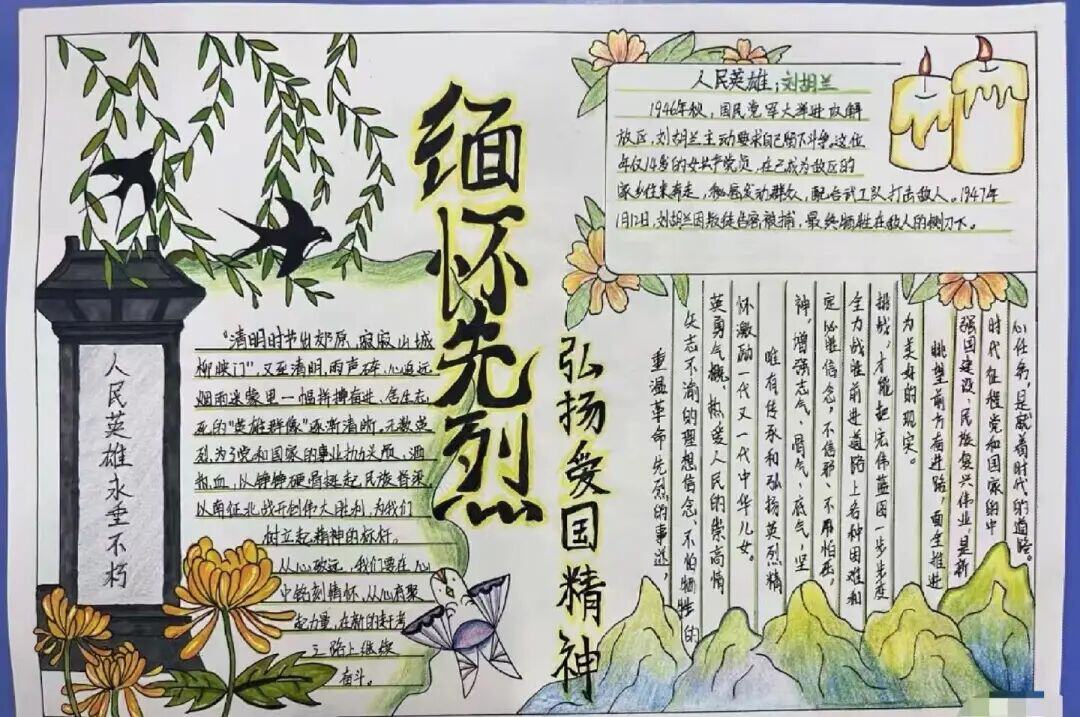 缅怀先烈
弘扬爱国精神
人民英雄永垂不朽
"清明时节出郊原,寂寂山城
柳映门",又至清明,雨声碎,心追远
烟雨迷蒙里一幅拼搏奋进、舍生忘
死的"英雄群像"逐渐清晰,无数英
烈,为了党和国家的事业抛头颅,洒
热血,以铮铮硬骨挺起民族脊梁
以南征北战开创伟大胜利,为我们
树立起精神的标杆。
从心致远,我们要在心
中铭刻情怀,从心底聚
起力量,在新的赶考
之路上继续
奋斗。
人民英雄:刘胡兰
1946年秋,国民党军大举进攻解
放区,刘胡兰主动要求自己留下斗争,这位
年仅14岁的女共产党员,在已成为敌区的
家乡往来奔走,秘密发动群众,配合武工队打击敌人。1947年
1月12日,刘胡兰因叛徒告密被捕,最终牺牲在敌人的铡刀下。
重温革命先烈的事迹,
矢志不渝的理想信念、不怕牺牲的
英勇气概、热爱人民的崇高情
怀激励一代又一代中华儿女。
唯有传承和弘扬英烈精
神,增强志气、骨气、底气,坚
定必胜信念,不信邪、不怕压,
全力战胜前进道路上各种困难和
挑战,才能把宏伟蓝图一步步变
为美好的现实。
眺望前方奋进路,面全推进
强国建设,民族复兴伟业,是新
时代征程党和国家的中
心任务,是
着时代的道路。